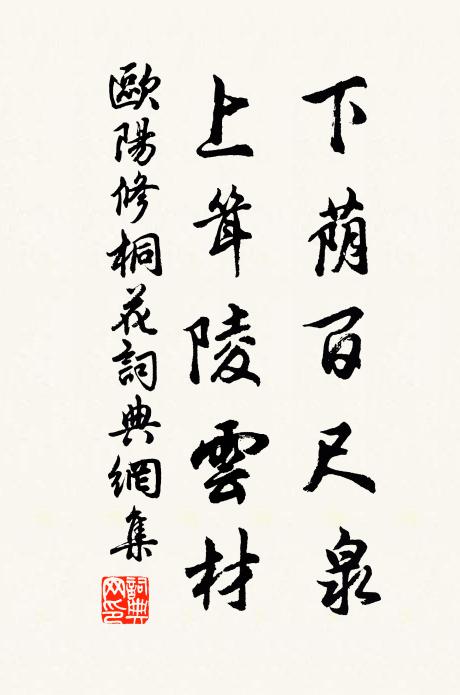 下荫百尺泉
上耸陵雲材
歐陽修桐花詞典網集
詞典网印